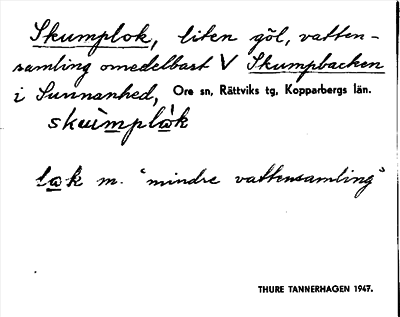 Skumplok, liten göl, vatten-
samling omedelbart V Skumpbacken
i Sunnanhed, Ore sn, Rättviks tg, Kopparbergs län.
skuìmplàk
làk m. "mindre vattensamling"
THURE TANNERHAGEN 1947.